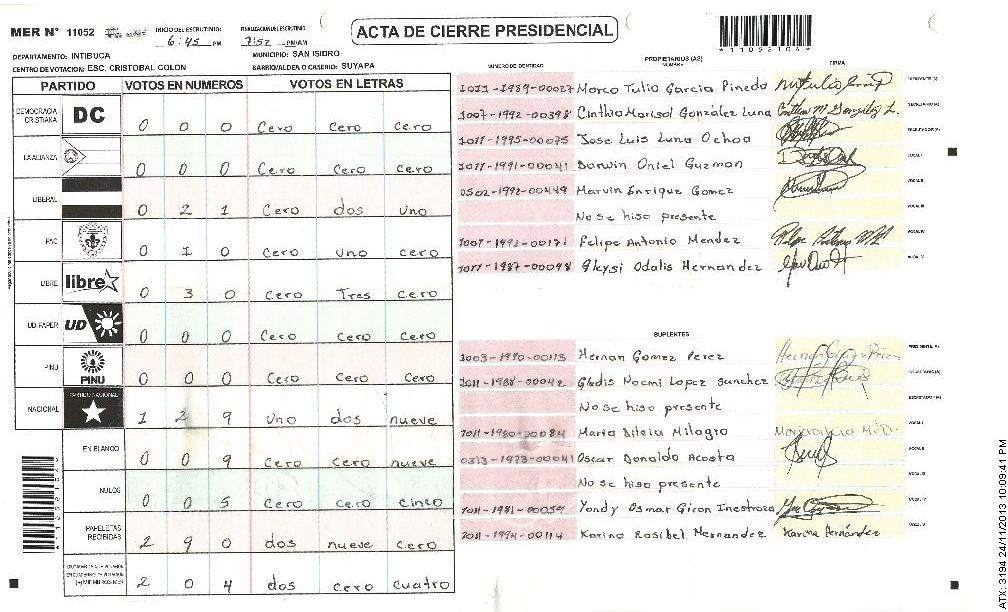 MER N° 11052
INICIO DEL ESCRUTINIO: 6:45 PM
FINALIZACION DEL ESCRUTINIO: 7:52 PM/AM
ACTA DE CIERRE PRESIDENCIAL
*11052104*
DEPARTAMENTO: INTIBUCA
MUNICIPIO: SAN ISIDRO
CENTRO DE VOTACION: ESC. CRISTOBAL COLON
BARRIO/ALDEA O CASERIO: SUYAPA
PARTIDO VOTOS EN NUMEROS VOTOS EN LETRAS
DEMOCRACIA CRISTIANA DC 0 0 0 Cero Cero Cero
LA ALIANZA 0 0 0 Cero Cero Cero
LIBERAL 0 2 1 Cero dos uno
PAC 0 1 0 Cero uno cero
LIBRE libre 0 3 0 Cero Tres cero
UD-FAPER UD 0 0 0 Cero Cero Cero
PINU PINU 0 0 0 Cero Cero Cero
NACIONAL PARTIDO NACIONAL 1 2 9 uno dos nueve
EN BLANCO 0 0 9 Cero Cero nueve
NULOS 0 0 5 Cero cero cinco
PAPELETAS RECIBIDAS 2 9 0 dos nueve cero
2 0 4 dos cero cuatro
NUMERO DE IDENTIDAD PROPIETARIOS (AS) NOMBRE FIRMA
1011-1989-00027 Marco Tulio Garcia Pineda
1007-1992-00398 Cinthia Marisol González Luna
1011-1995-00075 Jose Luis Luna Ochoa
1011-1991-00041 Darwin Oniel Guzman VOCAL I
0502-1992-00449 Marvin Enrique Gomez VOCAL II
No se hiso presente VOCAL III
1007-1992-00171 Felipe Antonio Mendez VOCAL IV
1011-1987-00098 Gleysi Odalis Hernandez VOCAL V
SUPLENTES
1003-1990-00113 Hernan Gomez Perez
1011-1988-00042 Gladis Noemi Lopez Sanchez
No se hiso presente
1011-1980-00084 Maria Milagro VOCAL I
0313-1973-00041 Oscar Donaldo Acosta VOCAL II
No se hiso presente VOCAL III
1011-1981-00059 Yondy Osmar Giron Inestroza VOCAL IV
1011-1994-00114 Karina Rosibel Hernandez Karina Hernández VOCAL V
ATX: 3194 24/11/2013 10:09:41 PM